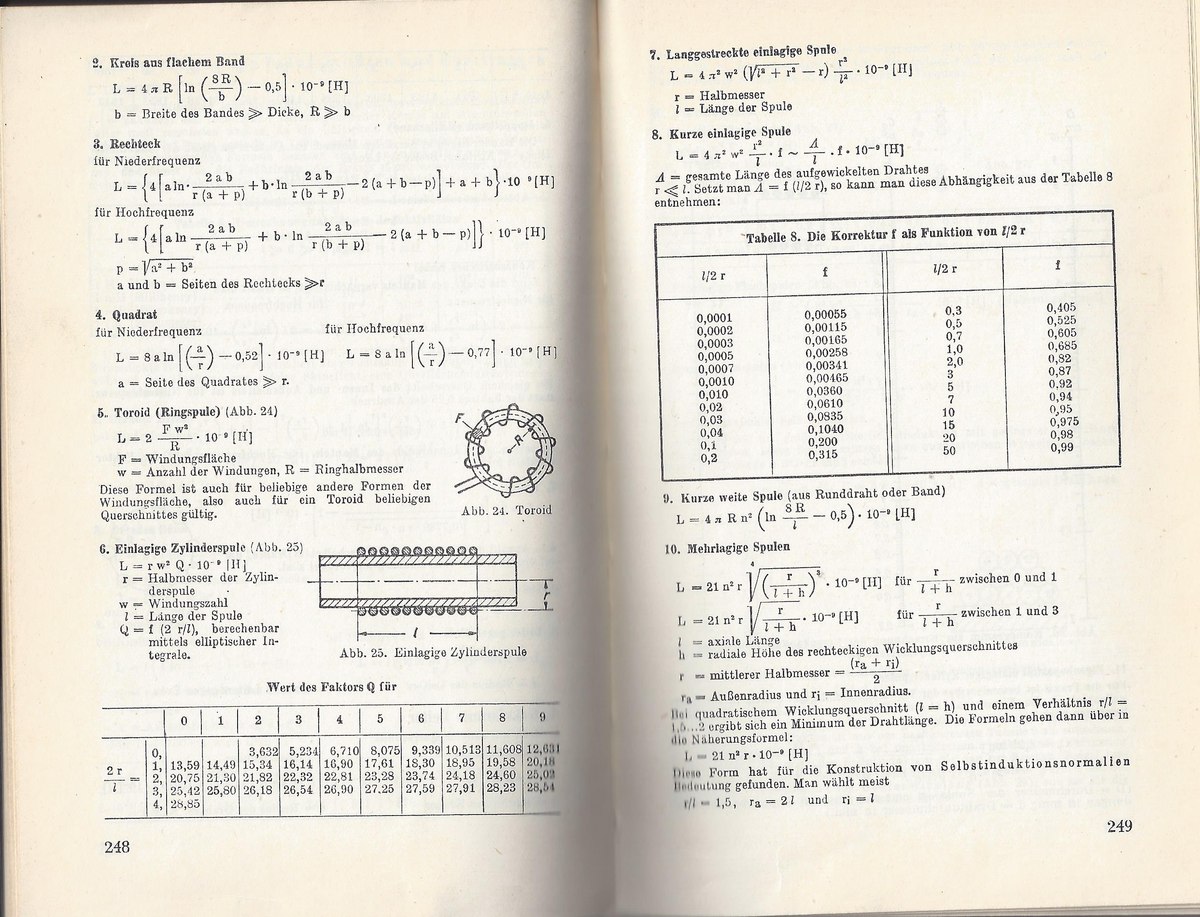 2. Kreis aus flachem Band
L = 4 π R [ln (8R/b) — 0,5] · 10⁻⁹ [H]
b = Breite des Bandes ≫ Dicke, R ≫ b
3. Rechteck
für Niederfrequenz
L = {4[a ln · 2ab/r(a + p) + b · ln 2ab/r(b + p) — 2(a + b — p)] + a + b} · 10 ⁹ [H]
für Hochfrequenz
L = {4[a ln 2ab/r(a + p) + b · ln 2ab/r(b + p) — 2(a + b — p)]} · 10⁻⁹ [H]
p = √a² + b²
a und b = Seiten des Rechtecks ≫ r
4. Quadrat
für Niederfrequenz für Hochfrequenz
L = 8 a ln [(a/r) — 0,52] · 10⁻⁹ [H] L = 8 a ln [(a/r) — 0,77] · 10⁻⁹ [H]
a = Seite des Quadrates ≫ r.
5. Toroid (Ringspule) (Abb. 24)
L = 2 F w²/R · 10⁻⁹ [H]
F = Windungsfläche
w = Anzahl der Windungen, R = Ringhalbmesser
Diese Formel ist auch für beliebige andere Formen der
Windungsfläche, also auch für ein Toroid beliebigen
Querschnittes gültig.
F
R
Abb. 24. Toroid
6. Einlagige Zylinderspule (Abb. 25)
L = r w² Q · 10⁻⁹ [H]
r = Halbmesser der Zylin-
derspule
w = Windungszahl
l = Länge der Spule
Q = f (2 r/l), berechenbar
mittels elliptischer In-
tegrale.
r
l
Abb. 25. Einlagige Zylinderspule
Wert des Faktors Q für
0 1 2 3 4 5 6 7 8 9
2 r/l
0, 3,632 5,234 6,710 8,075 9,339 10,513 11,608 12,631
1, 13,59 14,49 15,34 16,14 16,90 17,61 18,30 18,95 19,58 20,18
2, 20,75 21,30 21,82 22,32 22,81 23,28 23,74 24,18 24,60 25,02
3, 25,42 25,80 26,18 26,54 26,90 27.25 27,59 27,91 28,23 28,54
4, 28,85
248
7. Langgestreckte einlagige Spule
L = 4 π² w² (√l² + r² — r) r²/l² · 10⁻⁹ [H]
r = Halbmesser
l = Länge der Spule
8. Kurze einlagige Spule
L = 4 π² w² r²/l · f ~ Λ/l · f · 10⁻⁹ [H]
Λ = gesamte Länge des aufgewickelten Drahtes
r ≪ l. Setzt man Λ = f (l/2 r), so kann man diese Abhängigkeit aus der Tabelle 8
entnehmen:
Tabelle 8. Die Korrektur f als Funktion von l/2 r
l/2 r f l/2 r f
0,0001 0,00055 0,3 0,405
0,0002 0,00115 0,5 0,525
0,0003 0,00165 0,7 0,605
0,0005 0,00258 1,0 0,685
0,0007 0,00341 2,0 0,82
0,0010 0,00465 3 0,87
0,010 0,0360 5 0,92
0,02 0,0610 7 0,94
0,03 0,0835 10 0,95
0,04 0,1040 15 0,975
0,1 0,200 20 0,98
0,2 0,315 50 0,99
9. Kurze weite Spule (aus Runddraht oder Band)
L = 4 π R n² (ln 8R/l — 0,5) · 10⁻⁹ [H]
10. Mehrlagige Spulen
L = 21 n² r ⁴√(r/l + h)³ · 10⁻⁹ [H] für r/l + h zwischen 0 und 1
L = 21 n² r √r/l + h · 10⁻⁹ [H] für r/l + h zwischen 1 und 3
l = axiale Länge
h = radiale Höhe des rechteckigen Wicklungsquerschnittes
r = mittlerer Halbmesser = (ra + ri)/2
ra = Außenradius und ri = Innenradius.
Bei quadratischem Wicklungsquerschnitt (l = h) und einem Verhältnis r/l =
1,5...2 ergibt sich ein Minimum der Drahtlänge. Die Formeln gehen dann über in
die Näherungsformel:
L = 21 n² r · 10⁻⁹ [H]
Diese Form hat für die Konstruktion von Selbstinduktionsnormalien
Bedeutung gefunden. Man wählt meist
r/l = 1,5, ra = 2 l und ri = l
249